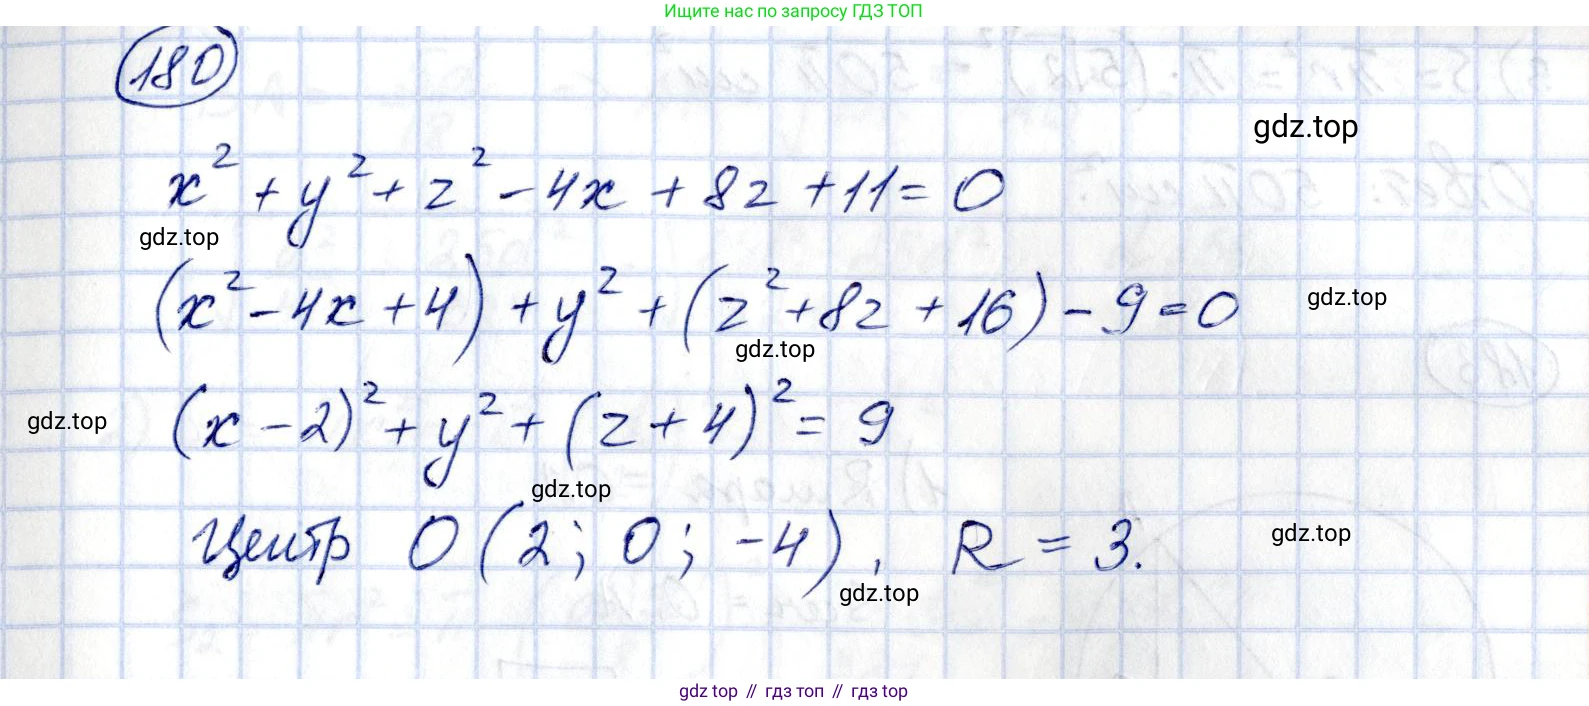 Ищите нас по запросу ГДЗ ТОП
180
gdz.top
x² + y² + z² - 4x + 8z + 11 = 0
gdz.top
(x² - 4x + 4) + y² + (z² + 8z + 16) - 9 = 0
gdz.top
gdz.top
(x - 2)² + y² + (z + 4)² = 9
gdz.top
gdz.top
Центр O (2; 0; -4), R = 3.
gdz.top
gdz.top
gdz top // гдз топ // гдз top